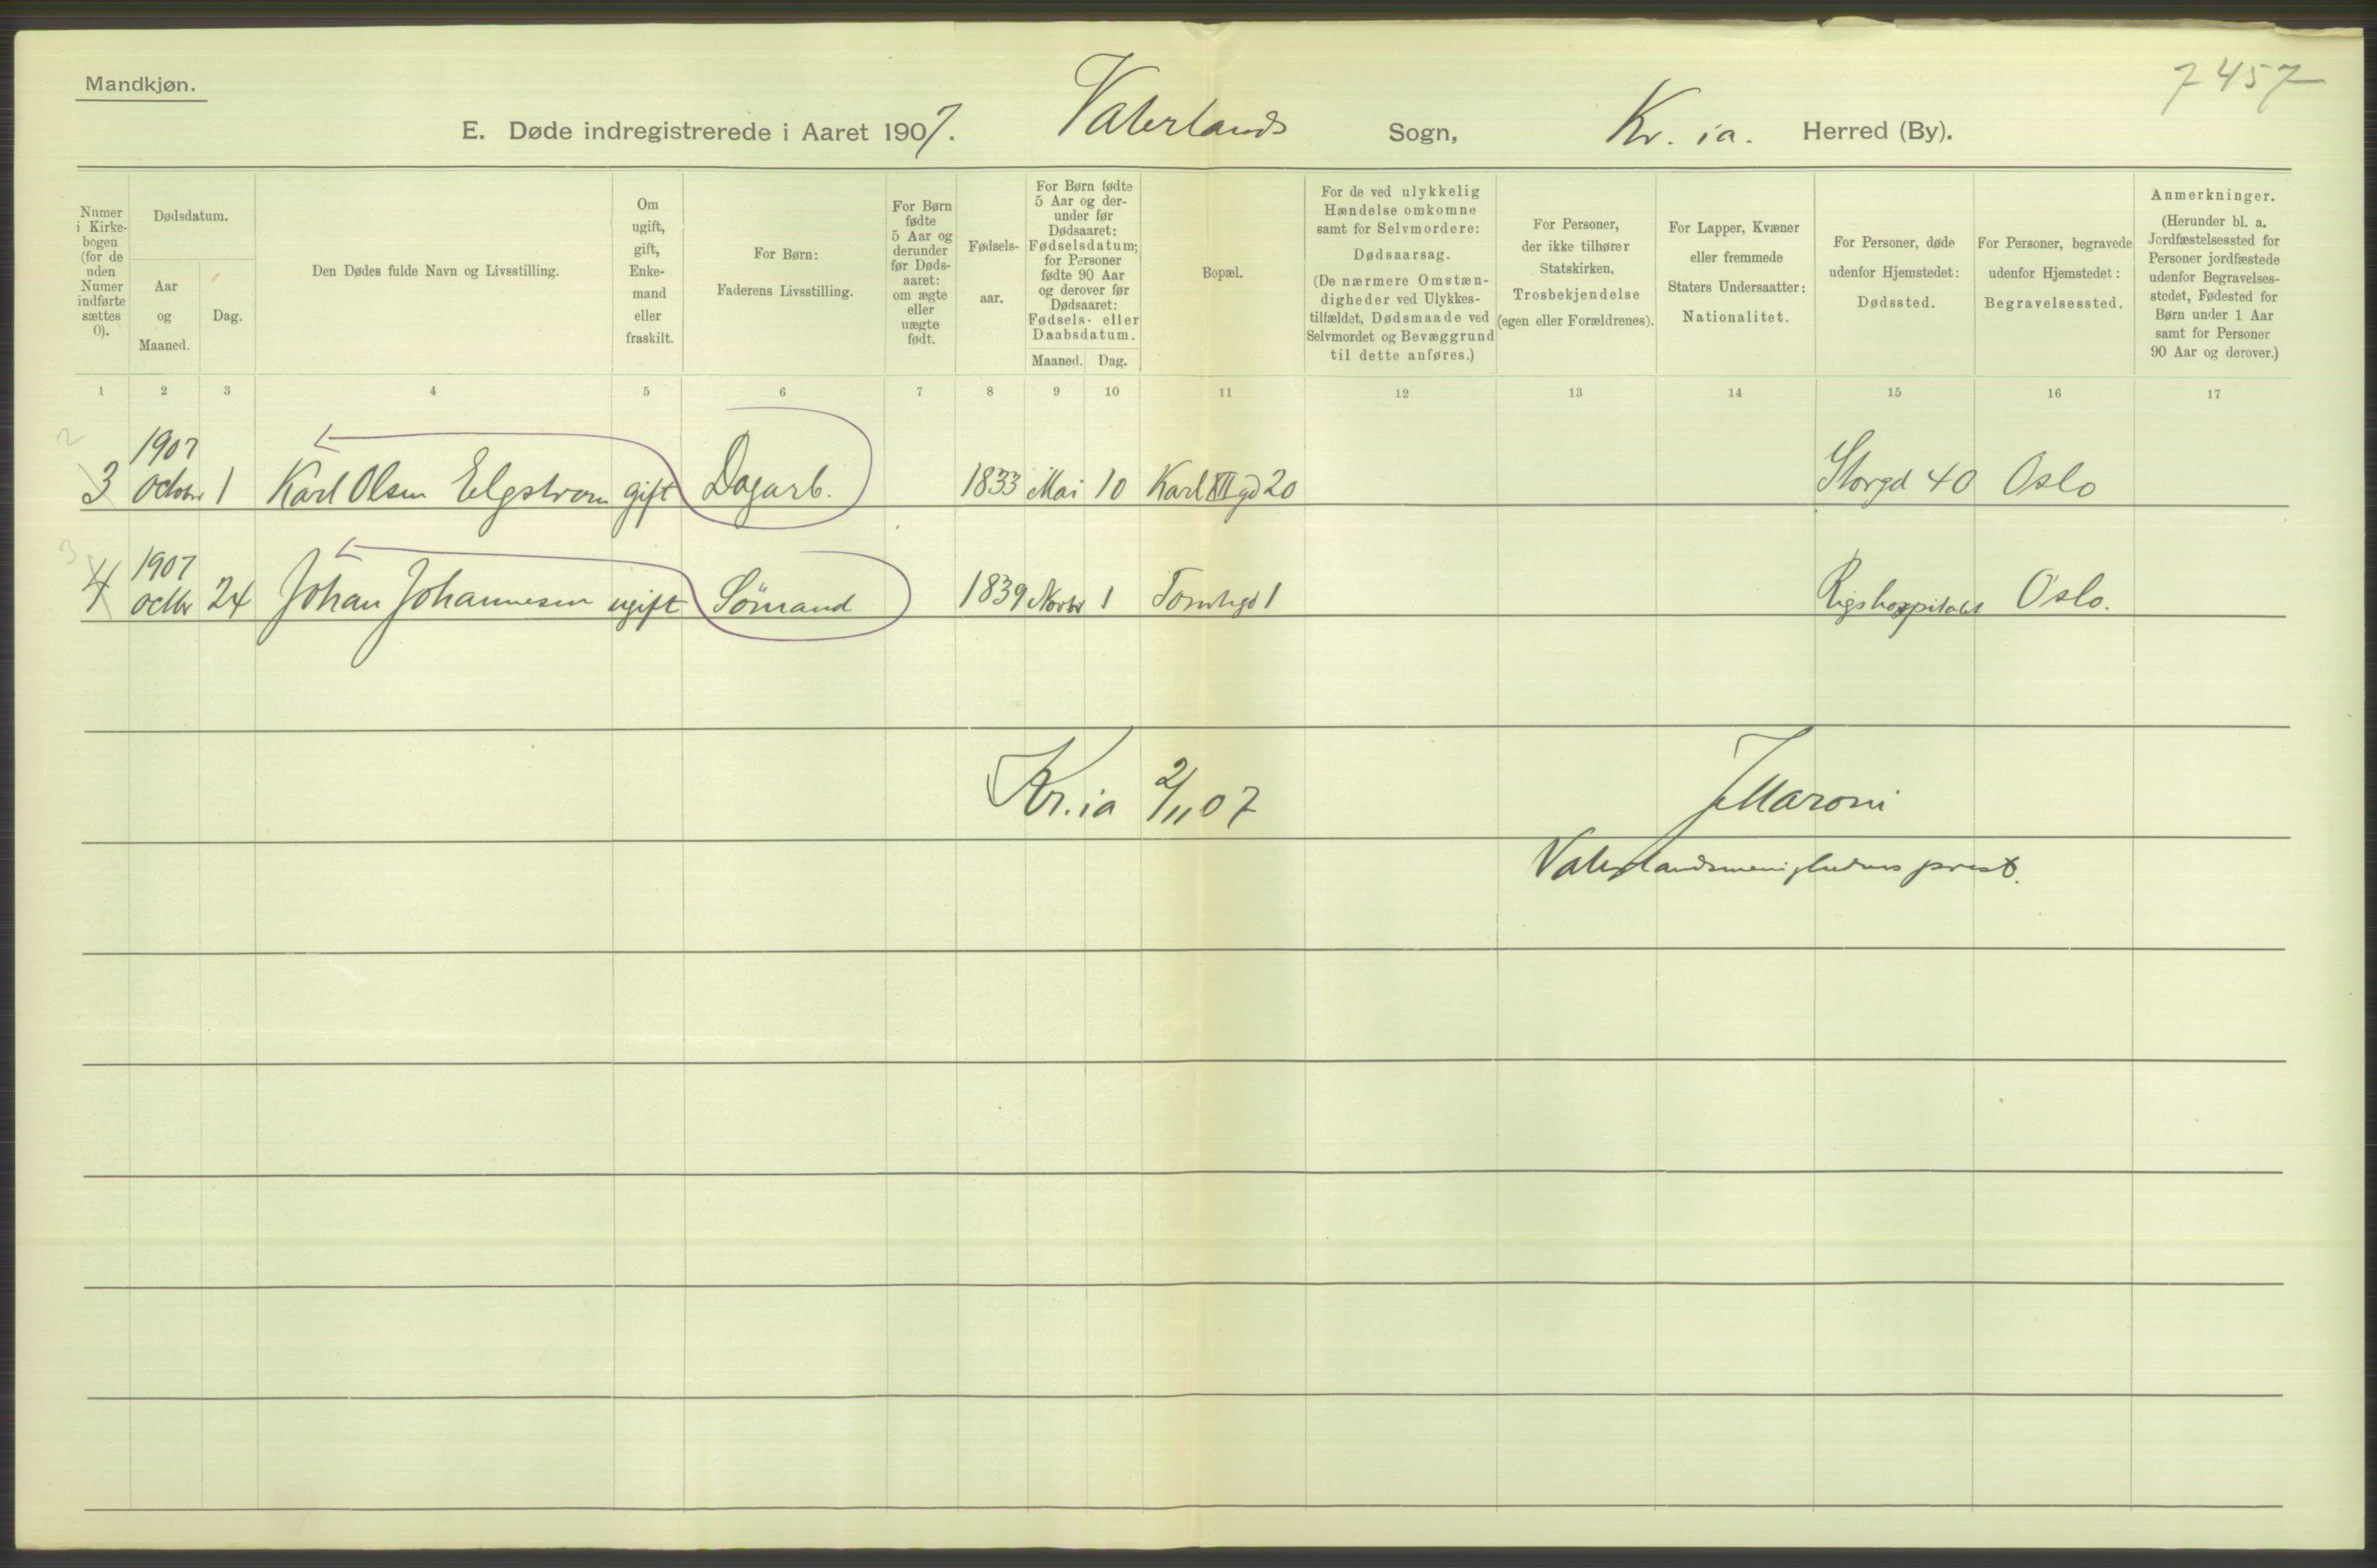 Mandkjøn.
7457
E. Døde indregistrerede i Aaret 1907. Vaterlands Sogn, Kr. ia. Herred (By).
Numer i Kirke-bogen (for de uden Numer indførte sættes 0).
Dødsdatum.
Aar og Maaned.
Dag.
Den Dødes fulde Navn og Livsstilling.
Om ugift, gift, Enke-mand eller fraskilt.
For Børn: Faderens Livsstilling.
For Børn fødte 5 Aar og derunder før Døds-aaret: om ægte eller uægte født.
Fødsels-aar.
For Børn fødte 5 Aar og der-under før Dødsaaret: Fødselsdatum; for Personer fødte 90 Aar og derover før Dødsaaret: Fødsels- eller Daabsdatum.
Maaned. Dag.
Bopæl.
For de ved ulykkelig Hændelse omkomne samt for Selvmordere: Dødsaarsag. (De nærmere Omstæn-digheder ved Ulykkes-tilfældet, Dødsmaade ved Selvmordet og Bevæggrund til dette anføres.)
For Personer, der ikke tilhører Statskirken, Trosbekjendelse (egen eller Forældrenes).
For Lapper, Kvæner eller fremmede Staters Undersaatter: Nationalitet.
For Personer, døde udenfor Hjemstedet: Dødssted.
For Personer, begravede udenfor Hjemstedet: Begravelsessted.
Anmerkninger. (Herunder bl. a. Jordfæstelsessted for Personer jordfæstede udenfor Begravelses-stedet, Fødested for Børn under 1 Aar samt for Personer 90 Aar og derover.)
1 2 3 4 5 6 7 8 9 10 11 12 13 14 15 16 17
2
1907
3 Octobr 1 Karl Olsen Elgstrom gift Dagarb. 1833 Mai 10 Karl XII gd 20 Storgd 40 Oslo
3
1907
4 octbr 24 Johan Johannesen ugift Sömand 1839 Novbr 1 Rigshospitalet Oslo.
Kr.ia 2/11 07 J Maroni
Vaterlandsmenighedens prest.